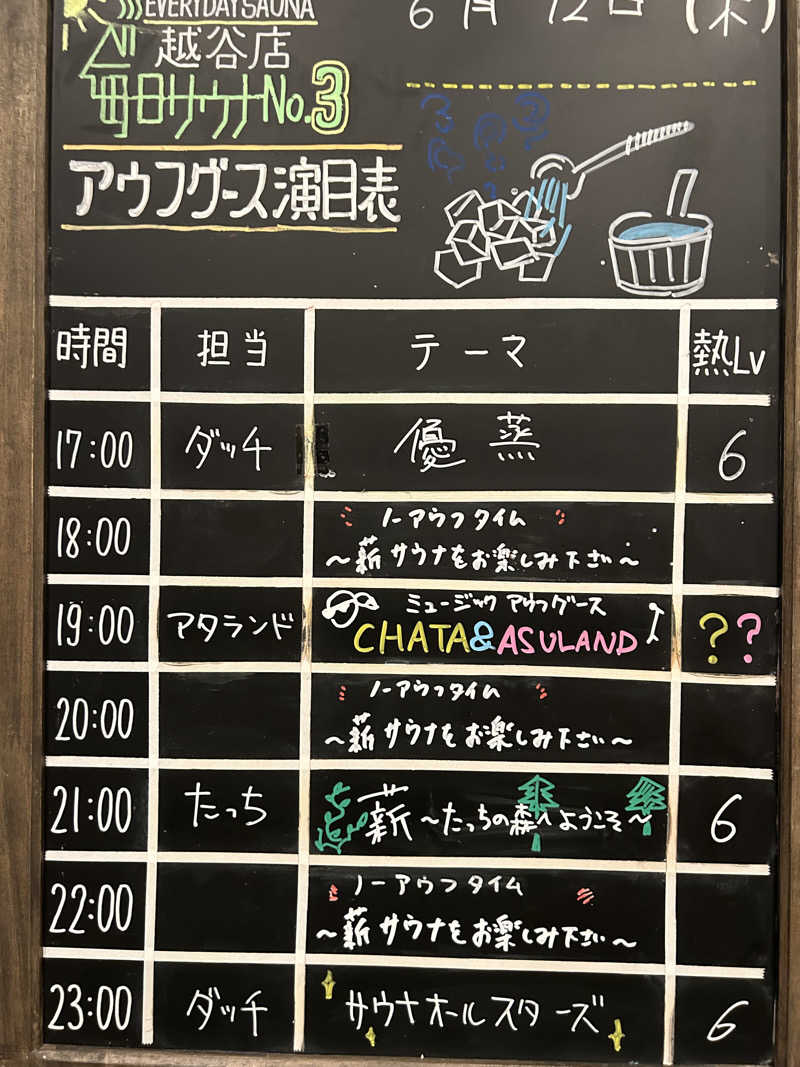 EVERYDAY SAUNA
6月12日(木)
越谷店
毎日サウナNo.3
アウフグース演目表
時間 担当 テーマ 熱Lv
17:00 ダッチ 優蒸 6
18:00 ノーアウフタイム
～薪サウナをお楽しみ下さい～
19:00 アタランド ミュージックアウフグース
CHATA&ASULAND ??
20:00 ノーアウフタイム
～薪サウナをお楽しみ下さい～
21:00 たっち 薪～たっちの森へようこそ～ 6
22:00 ノーアウフタイム
～薪サウナをお楽しみ下さい～
23:00 ダッチ サウナオールスターズ 6